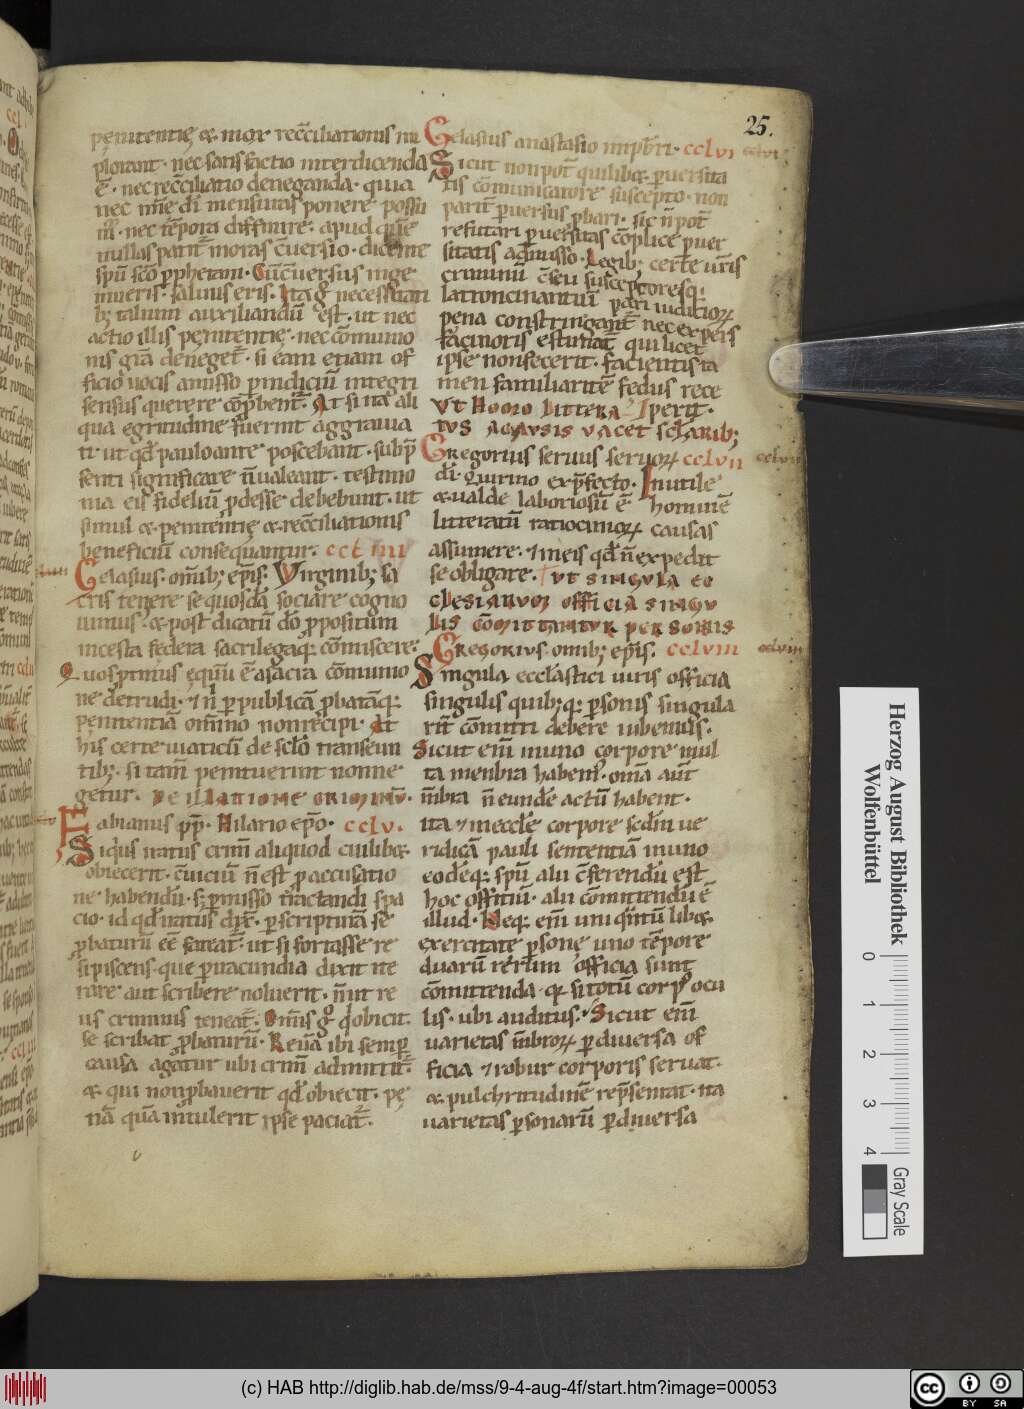 25.
penitentię & mox recc̄iliationis im
plorant· nec satisfactio interdicenda
ē· nec recc̄iliatio deneganda· quia
nec mīe dī mensuras ponere possu
m̄· nec tēpora diffinire· apud quē
nullas patit̄ moras cūersio· dicente
spū scō p̄phetam· Cū c̄uersus inge
mueris· saluus eris· Itaq̄ necessitati
b; talium auxiliandū est· ut nec
actio illis penitentie· nec cōmunio
nis grā deneget̄· si eam etiam of
ficio uocis amisso p indiciū integri
sensus querere cōp̄bent̄· At si ita ali
qua egritudine fuerint aggraua
ti· ut qd̄ paulo ante poscebant· sub p̄
senti significare n̄ ualeant· testimo
nia eis fideliū p̄desse debebunt· ut
simul & penitentię & recc̄iliationis
beneficiū consequantur· ccliiii
Gelasius· om̄ib; ep̄is· Virginib; sa
cris temere se quosdā sociare cogno
uimus· & post dicatū dō p̄positum
incesta federa sacrilegaq; cōmiscere·
Quos ptinus ęquū ē a sacra cōmunio
ne detrudi· & n̄ p publicā p̄batāq;
penitentiā om̄ino non recipi· At
his certe uiaticū de sc̄lo transeun
tib;· si tam̄ penituerint non ne
getur· DE ILLATIONE CRIMINŪ·
Fabianus pp̄· Hilario ep̄o· cclv·
Siqis natus crim̄ aliquod cuilib&
obiecerit· c̄uiciū n̄ est p accusatio
ne habendū· s; p̄misso tractandi spa
cio· id qd̄ iratus dix̄· p scripturā se
p̄baturū eē fateat̄· ut si fortasse re
sipiscens· que p iracundia dixit ite
rare aut scribere noluerit· n̄ ut re
us criminis teneat̄· Om̄is g̊ q obicit·
se scribat p̄baturū· Reuā ibi semp
causa agatur ubi crim̄ admittit̄·
& qui non p̄bauerit qd̄ obiecit· pę
nā quā intulerit ipse paciat̄·
Gelasius anastasio imp̄ri· cclvi cclvi
Sicut non pot̄ quilib& puersita
tis cōmunicatore suscepto· non
parit̄ puersus p̄bari· sic n̄ pot̄
refutari puersitas cōplice puer
sitatis admisso· Legib; certe ur̄is
criminū c̄seu susceptoresq;
latrocinantiū pari iudicioꝝ
pena constringant̄ nec expers
facinoris estimat̄ qui licet
ipse non fecerit· facientis ta
men familiaritē fedus rece
perit· VT HOMO LITTERA
TVS A CAVSIS VACET SCLARIB;
Gregorius seruus seruoꝝ cclvii cclvii
dī· quirino exp̄fecto· Inutile
& ualde laboriosū ē hominē
litteratū ratiocinioꝝ causas
assumere· & in eis qd̄ n̄ expedit
se obligare· VT SINGVLA EC
CLESIARVM OFFICIA SINGV
LIS COMITTANTVR PERSONIS
GREGORIVS· omib; ep̄is· cclviii cclviii
Singula ecclastici iuris officia
singulis quib;q; psonis singula
rit̄ cōmitti debere iubemus·
Sicut eni in uno corpore mul
ta menbra habem̄· om̄a aut̄
m̄bra n̄ eundē actū habent·
ita & in eccl̄e corpore scd̄m ue
ridicā pauli sententiā in uno
eodēq; spū alii c̄ferendū est
hoc offitiū· alii cōmittendū ē
illud· Neq; eni uni quātū lib&
exercitate psonę uno tēpore
duarū rerum officia sunt
cōmittenda· q̄ si totū corp̄ ocu
lis· ubi auditus· Sicut eni
uarietas m̄broꝝ p diuersa of
ficia & robur corporis seruat·
& pulchritudinē rep̄sentat· ita
uarietas psonarū p diuersa
Herzog August Bibliothek
Wolfenbüttel
0 1 2 3 4
Gray Scale
(c) HAB http://diglib.hab.de/mss/9-4-aug-4f/start.htm?image=00053
cc BY SA